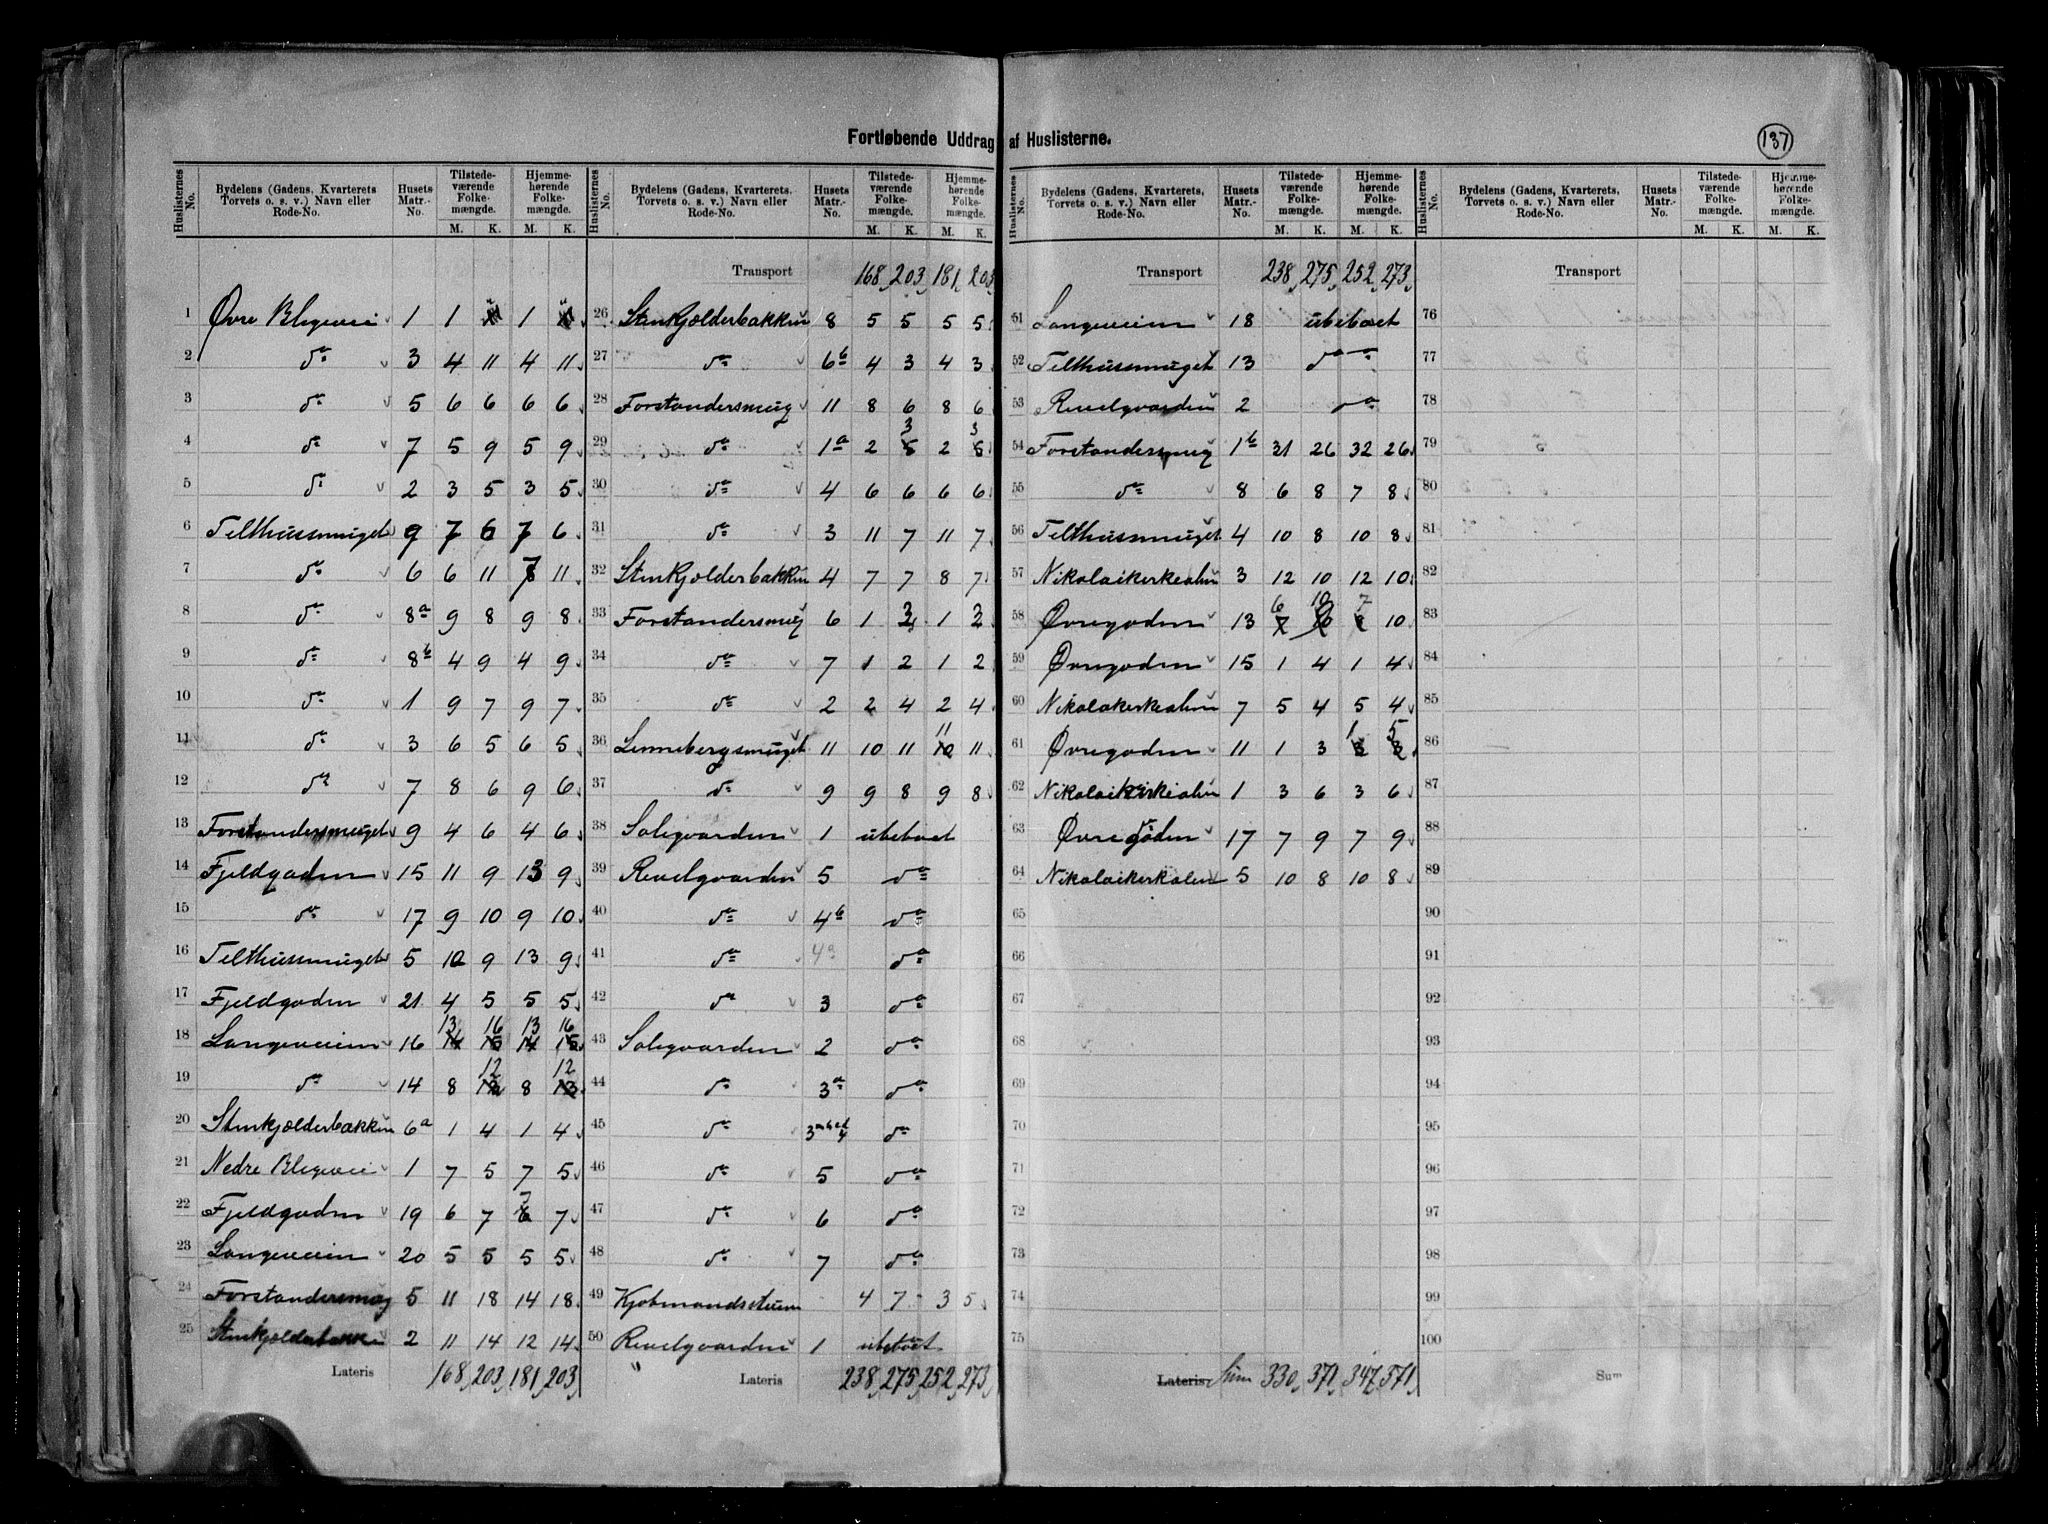 Fortløbende Uddrag af Huslisterne.
137
Huslisternes No. | Bydelens (Gadens, Kvarterets Torvets o. s. v.) Navn eller Rode-No. | Husets Matr.-No. | Tilstedeværende Folkemængde. M. K. | Hjemmehørende Folkemængde. M. K.
1 Øvre Blegevei 1 1 1
2 do 3 4 11 4 11
3 do 5 6 6 6 6
4 do 7 5 9 5 9
5 do 2 3 5 3 5
6 Telthussmuget 9 7 6 7 6
7 do 6 6 11 7 11
8 do 8a 9 8 9 8
9 do 8b 4 9 4 9
10 do 1 9 7 9 7
11 do 3 6 5 6 5
12 do 7 8 6 9 6
13 Forstandersmuget 9 4 6 4 6
14 Fjeldgaden 15 11 9 13 9
15 do 17 9 10 9 10
16 Telthussmuget 5 10 9 13 9
17 Fjeldgaden 21 4 5 5 5
18 Langeveien 16 13 16 13 16
19 do 14 8 12 8 12
20 Stenkjælderbakken 6a 1 4 1 4
21 Nedre Blegevei 1 7 5 7 5
22 Fjeldgaden 19 6 7 7 7
23 Langeveien 20 5 5 5 5
24 Forstandersmug 5 11 18 14 18
25 Stenkjelderbakken 2 11 14 12 14
Lateris 168 203 181 203
Huslisternes No. | Bydelens (Gadens, Kvarterets. Torvets o. s. v.) Navn eller Rode-No. | Husets Matr.-No. | Tilstedeværende Folkemængde. M. K. | Hjemmehørende Folkemængde. M. K.
Transport 168 203 181 203
26 Stenkjælderbakken 8 5 5 5 5
27 do 6b 4 3 4 3
28 Forstandersmug 11 8 6 8 6
29 do 1a 2 3 2 3
30 do 4 6 6 6 6
31 do 3 11 7 11 7
32 Stenkjælderbakken 4 7 7 8 7
33 Forstandersmug 6 1 3 1 3
34 do 7 1 2 1 2
35 do 2 2 4 2 4
36 Lennebergsmuget 11 10 11 11 11
37 do 9 9 8 9 8
38 Solegaarden 1 ubeboet
39 Revelgaarden 5 do
40 do 4b do
41 do 4a do
42 do 3 do
43 Solegaarden 2 do
44 do 3a do
45 do do
46 do 5 do
47 do 6 do
48 do 7 do
49 Kjøbmandsstuen 4 7 3 5
50 Revelgaarden 1 ubeboet
Lateris 238 275 252 273
Huslisternes No. | Bydelens (Gadens, Kvarterets, Torvets o. s. v.) Navn eller Rode-No. | Husets Matr.-No. | Tilstedeværende Folkemængde. M. K. | Hjemmehørende Folkemængde. M. K.
Transport 238 275 252 273
51 Langeveien 18 ubeboet
52 Telthussmuget 13 do
53 Revelgaarden 2 do
54 Forstandersmug 1b 31 26 32 26
55 do 8 6 8 7 8
56 Telthussmuget 4 10 8 10 8
57 Nikolaikirkealm 3 12 10 12 10
58 Øvregaden 13 6 10 7 10
59 Øvregaden 15 1 4 1 4
60 Nikolakirkealm 7 5 4 5 4
61 Øvregaden 11 1 3 1 5
62 Nikolaikirkealm 1 3 6 3 6
63 Øvregaden 17 7 9 7 9
64 Nikolaikerkalm 5 10 8 10 8
65
66
67
68
69
70
71
72
73
74
75
Lateris. Sum 330 371 347 371
Huslisternes No. | Bydelens (Gadens, Kvarterets, Torvets o. s. v.) Navn eller Rode-No. | Husets Matr.-No. | Tilstedeværende Folkemængde. M. K. | Hjemmehørende Folkemængde. M. K.
Transport
76
77
78
79
80
81
82
83
84
85
86
87
88
89
90
91
92
93
94
95
96
97
98
99
100
Sum